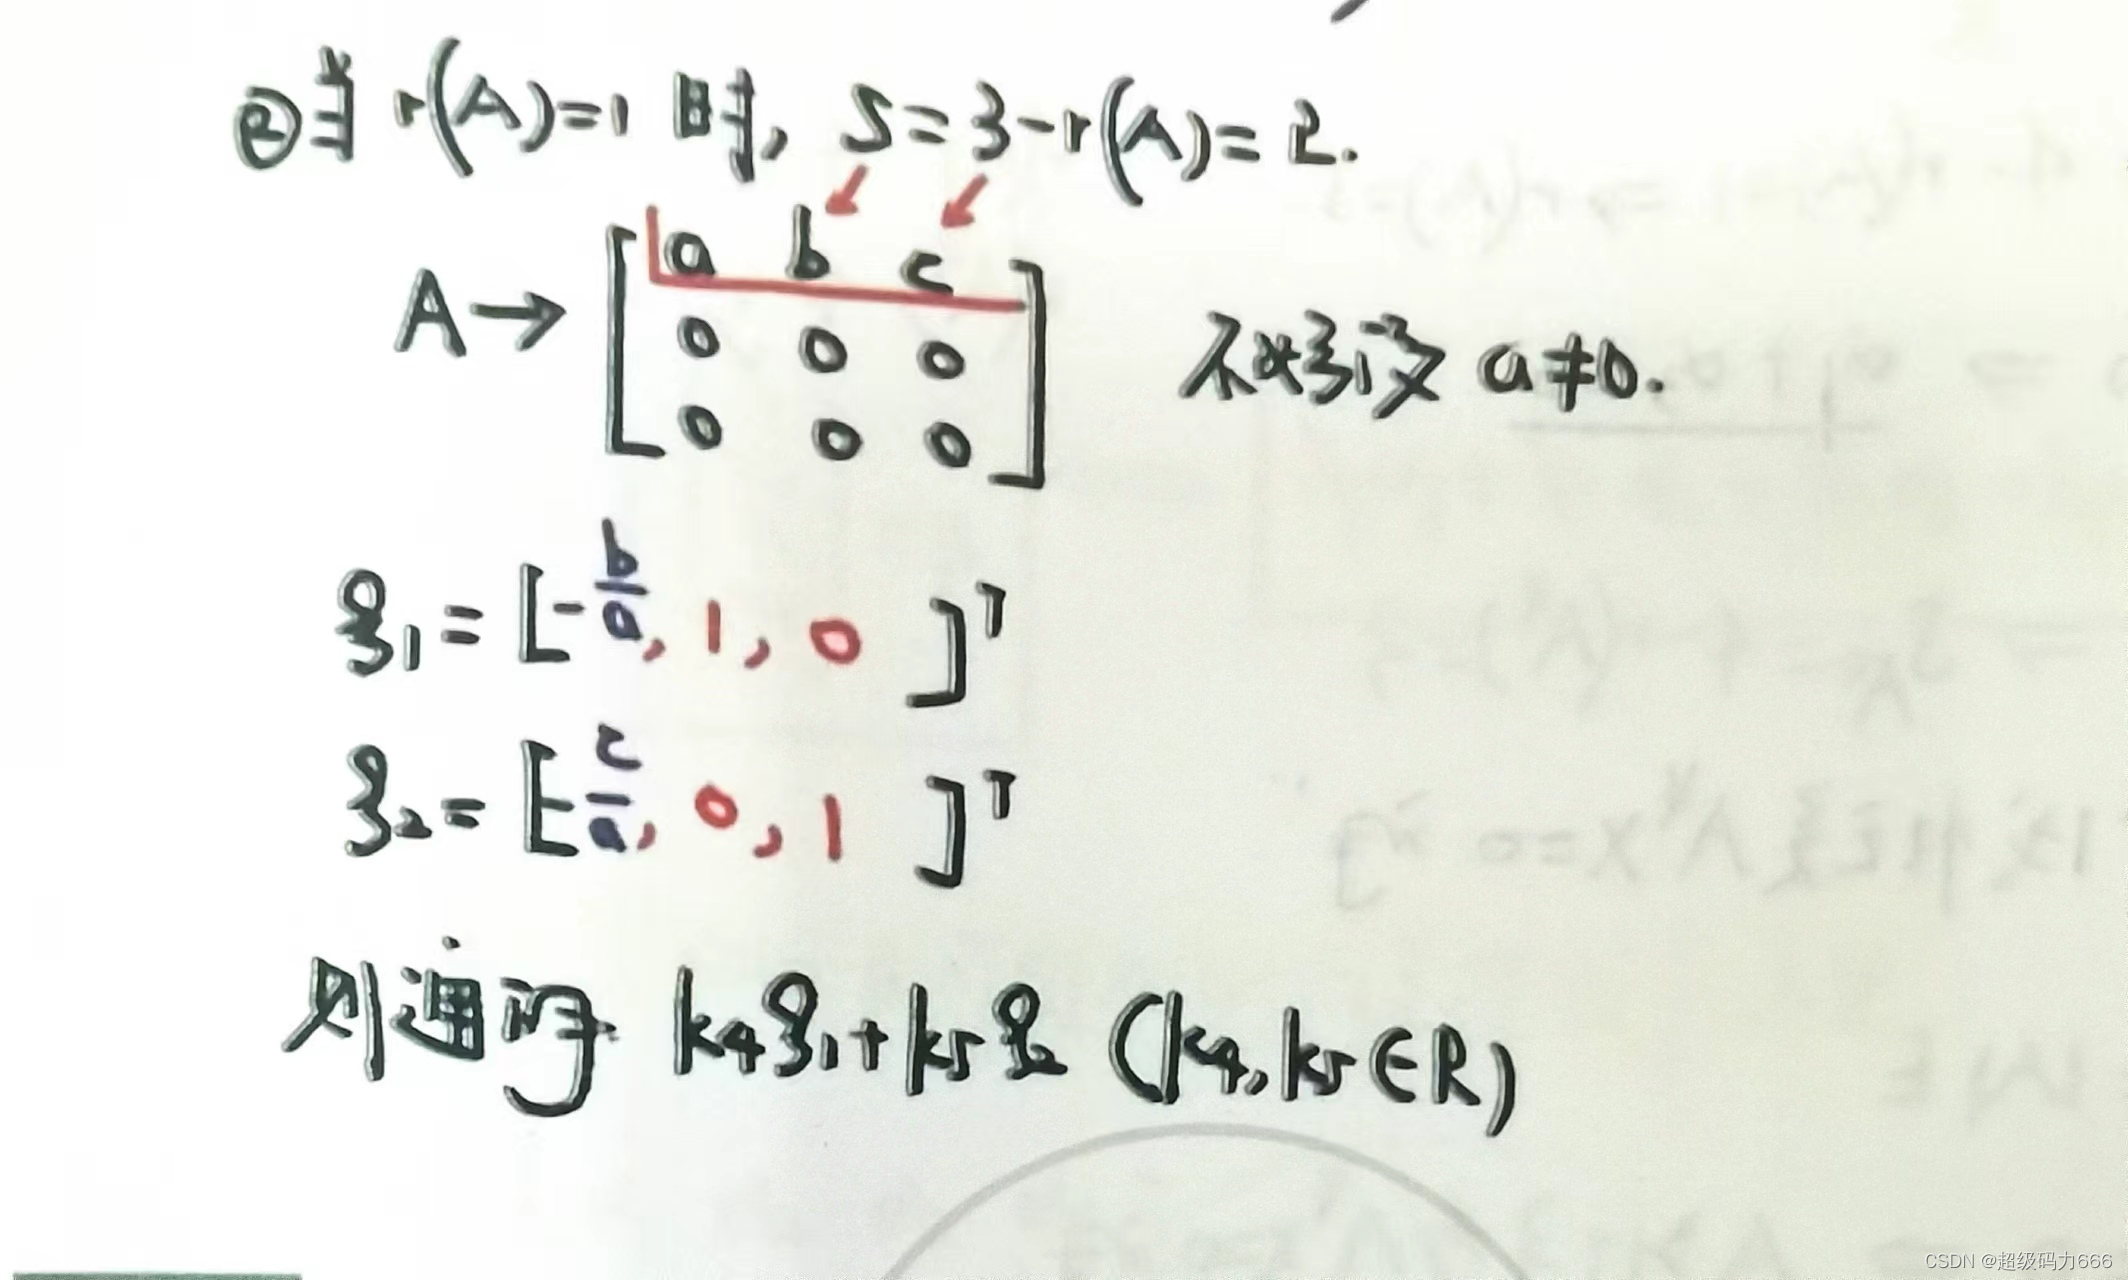 ②当 r(A)=1 时, S=3-r(A)=2.
A→ [a b c
0 0 0
0 0 0] 不妨设 a≠0.
ξ₁=[-b/a, 1, 0]ᵀ
ξ₂=[-c/a, 0, 1]ᵀ
则通解 k₄ξ₁+k₅ξ₂ (k₄,k₅∈R)
CSDN @超级码力666